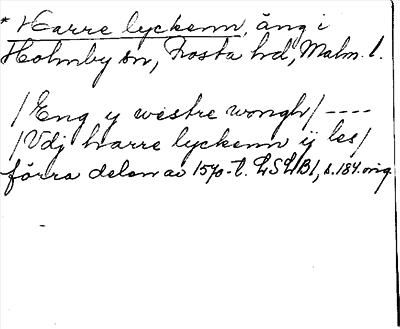 * Harre lyckenn, äng i
Holmby sn, Frosta hd, Malm. l.
/Eng y westre wongh/ ----
/Vdj harre lyckenn ÿ les/
förra delen av 1570-t. LSLB1, s. 184. orig.